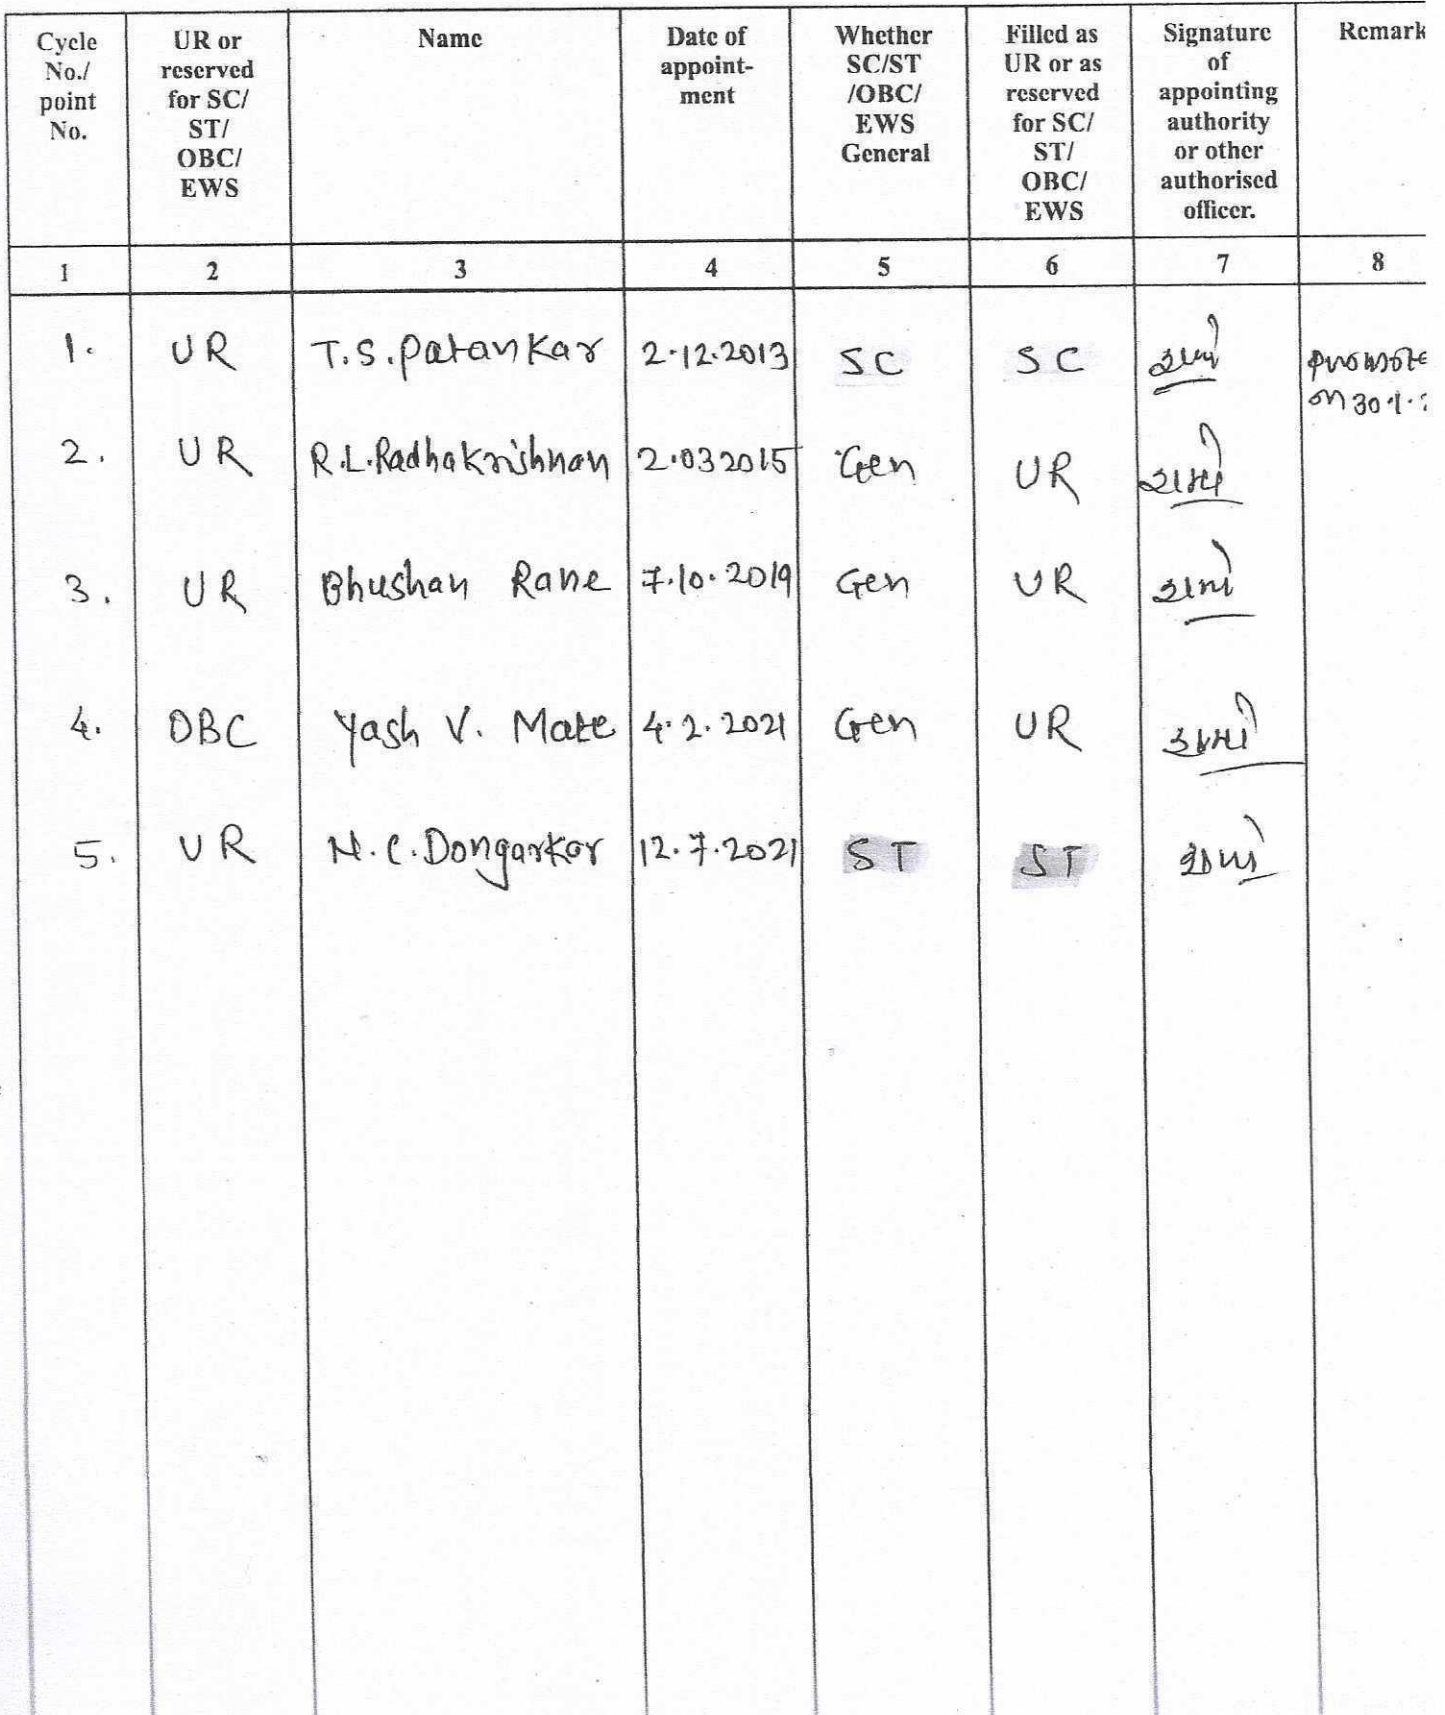 Cycle No./ point No. | UR or reserved for SC/ ST/ OBC/ EWS | Name | Date of appoint- ment | Whether SC/ST /OBC/ EWS General | Filled as UR or as reserved for SC/ ST/ OBC/ EWS | Signature of appointing authority or other authorised officer. | Remark
1 | 2 | 3 | 4 | 5 | 6 | 7 | 8
1. UR T.S.Patankar 2.12.2013 SC SC promote
on 30.1.
2. UR R.L.Radhakrishnan 2.032015 Gen UR
3. UR Bhushan Rane 7.10.2019 Gen UR
4. OBC Yash V. Mate 4.2.2021 Gen UR
5. UR N.C.Dongarkar 12.7.2021 ST ST